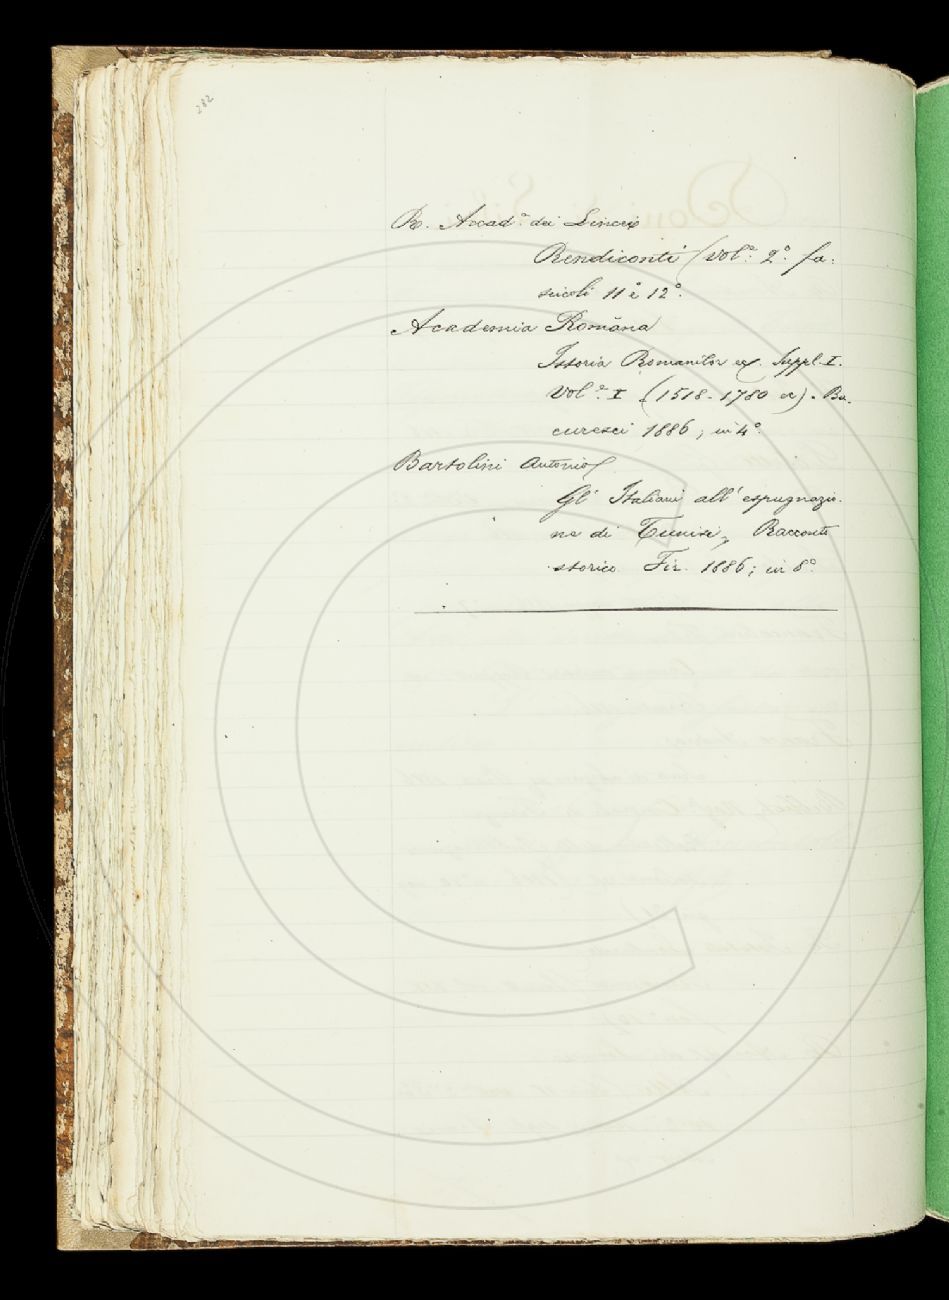 282
R. Accad.ª dei Lincei
Rendiconti (Vol.º 2.º fa-
scicoli 11º e 12º.
Academia Romăna
Istoria Romanilor Suppl. I.
Vol.º I (1518-1780 ). Bu-
curesci 1886; in 4º.
Bartolini Antonio
Gl' Italiani all' espugnazio-
ne di Tunisi, Racconto
storico. Fir. 1886; in 8º.